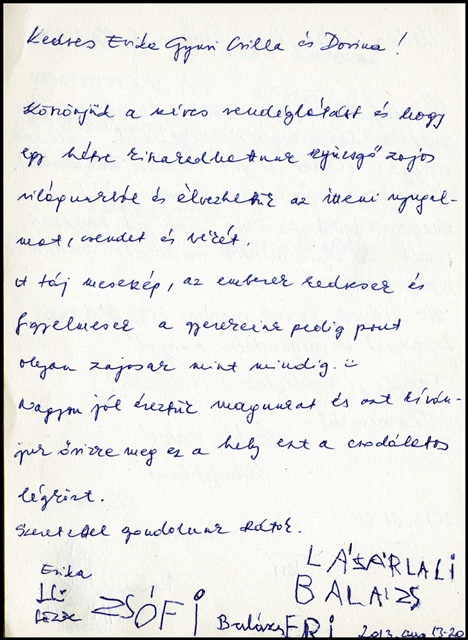 Kedves Erika Gyuri Csilla és Dorina!
Köszönjük a szíves vendéglátást és hogy
egy hétre kiszakadhattunk nyüzsgő zajos
világunkból és élvezhettük az itteni nyugal-
mat, csendet és békét.
A táj mesekép, az emberek kedvesek és
figyelmesek a gyerekeink pedig pont
olyan zajosak mint mindig.
Nagyon jól éreztük magunkat és azt kíván-
juk őrizze meg ez a hely ezt a csodálatos
légkört.
Szeretettel gondolunk Rátok.
Erika
ZSÓFI
BALÁZS
Balázs FRI 2013. aug 13-20